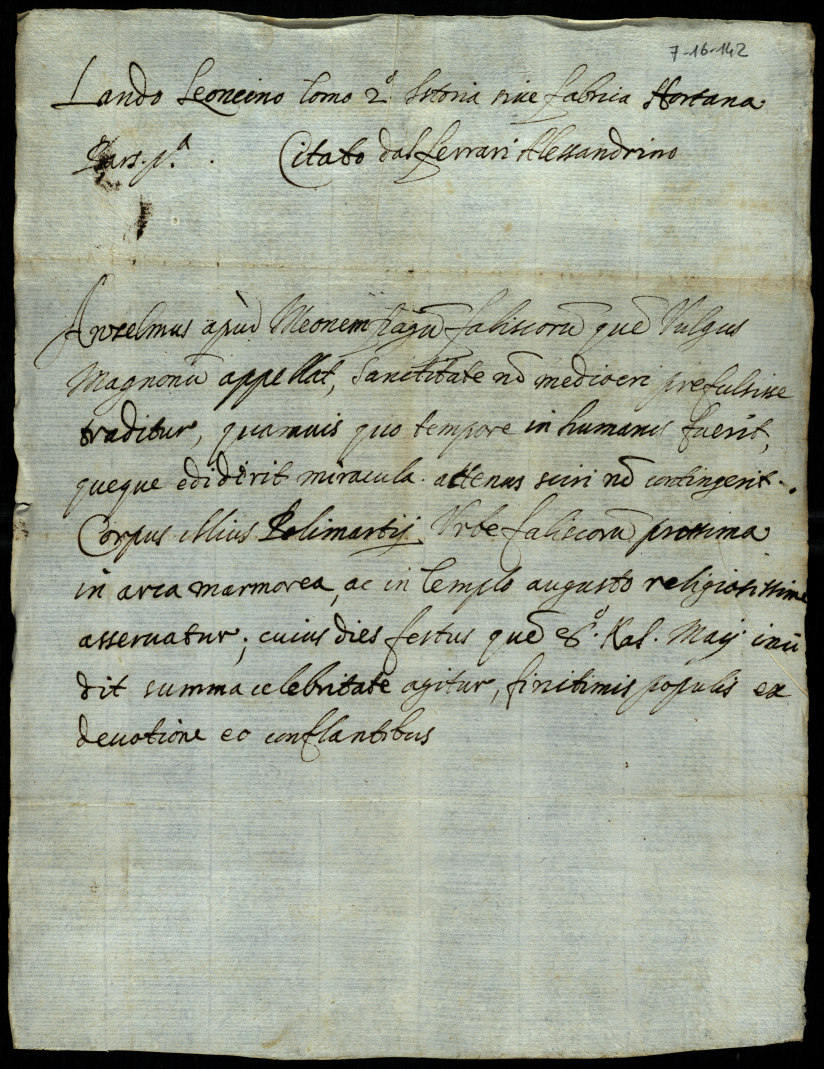 7-16-142
Lando Leoncino Tomo 2.º Istoria sive fabrica Hortana
Pars. p.ª . Citato dal ferrari Alessandrino
Anselmus apùd Meonem pagũ faliscorũ quẽ Vulgus
Magnonũ appellat, Sanctitate nõ mediocri prefulsisse
traditur, quamuis quo tempore in humanis fuerit,
queque ediderit miracula attenus sciri nõ contingerit.
Corpus illius Polimartij Vrbe faliscorũ prossima
in arca marmorea, ac in Templo augusto religiosissime
asseruatur; cuius dies festus quẽ 8.º Kal. Maij inci
dit summa celebritate agitur, finitimis populis ex
deuotione eo conflantibus